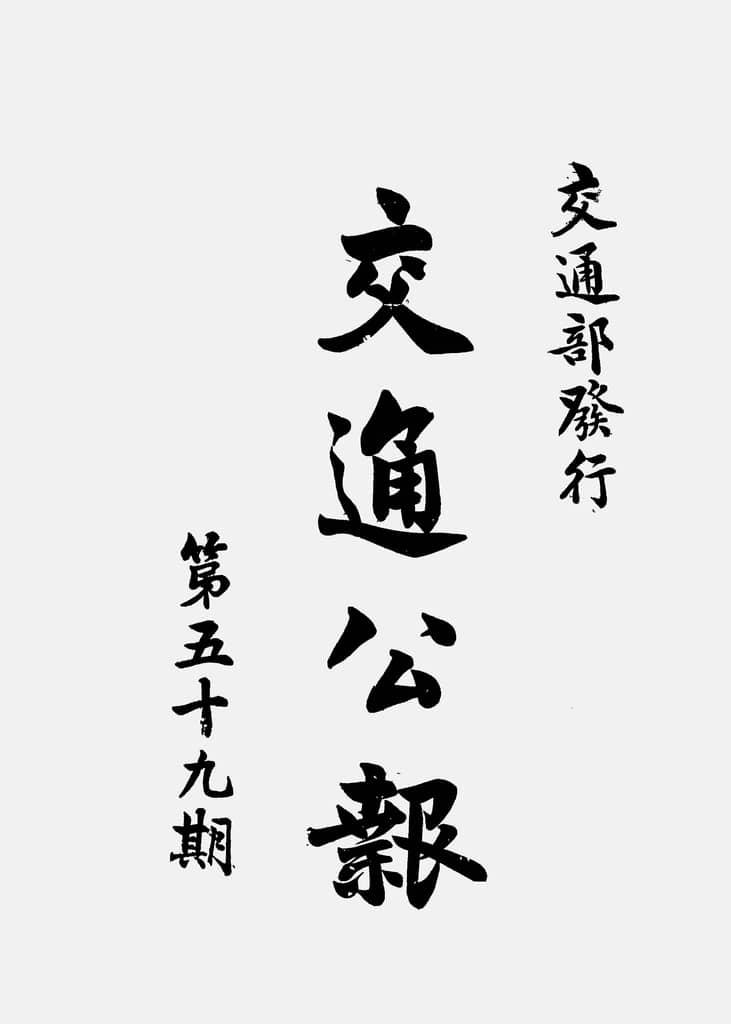 交通部發行
交通公報
第五十九期